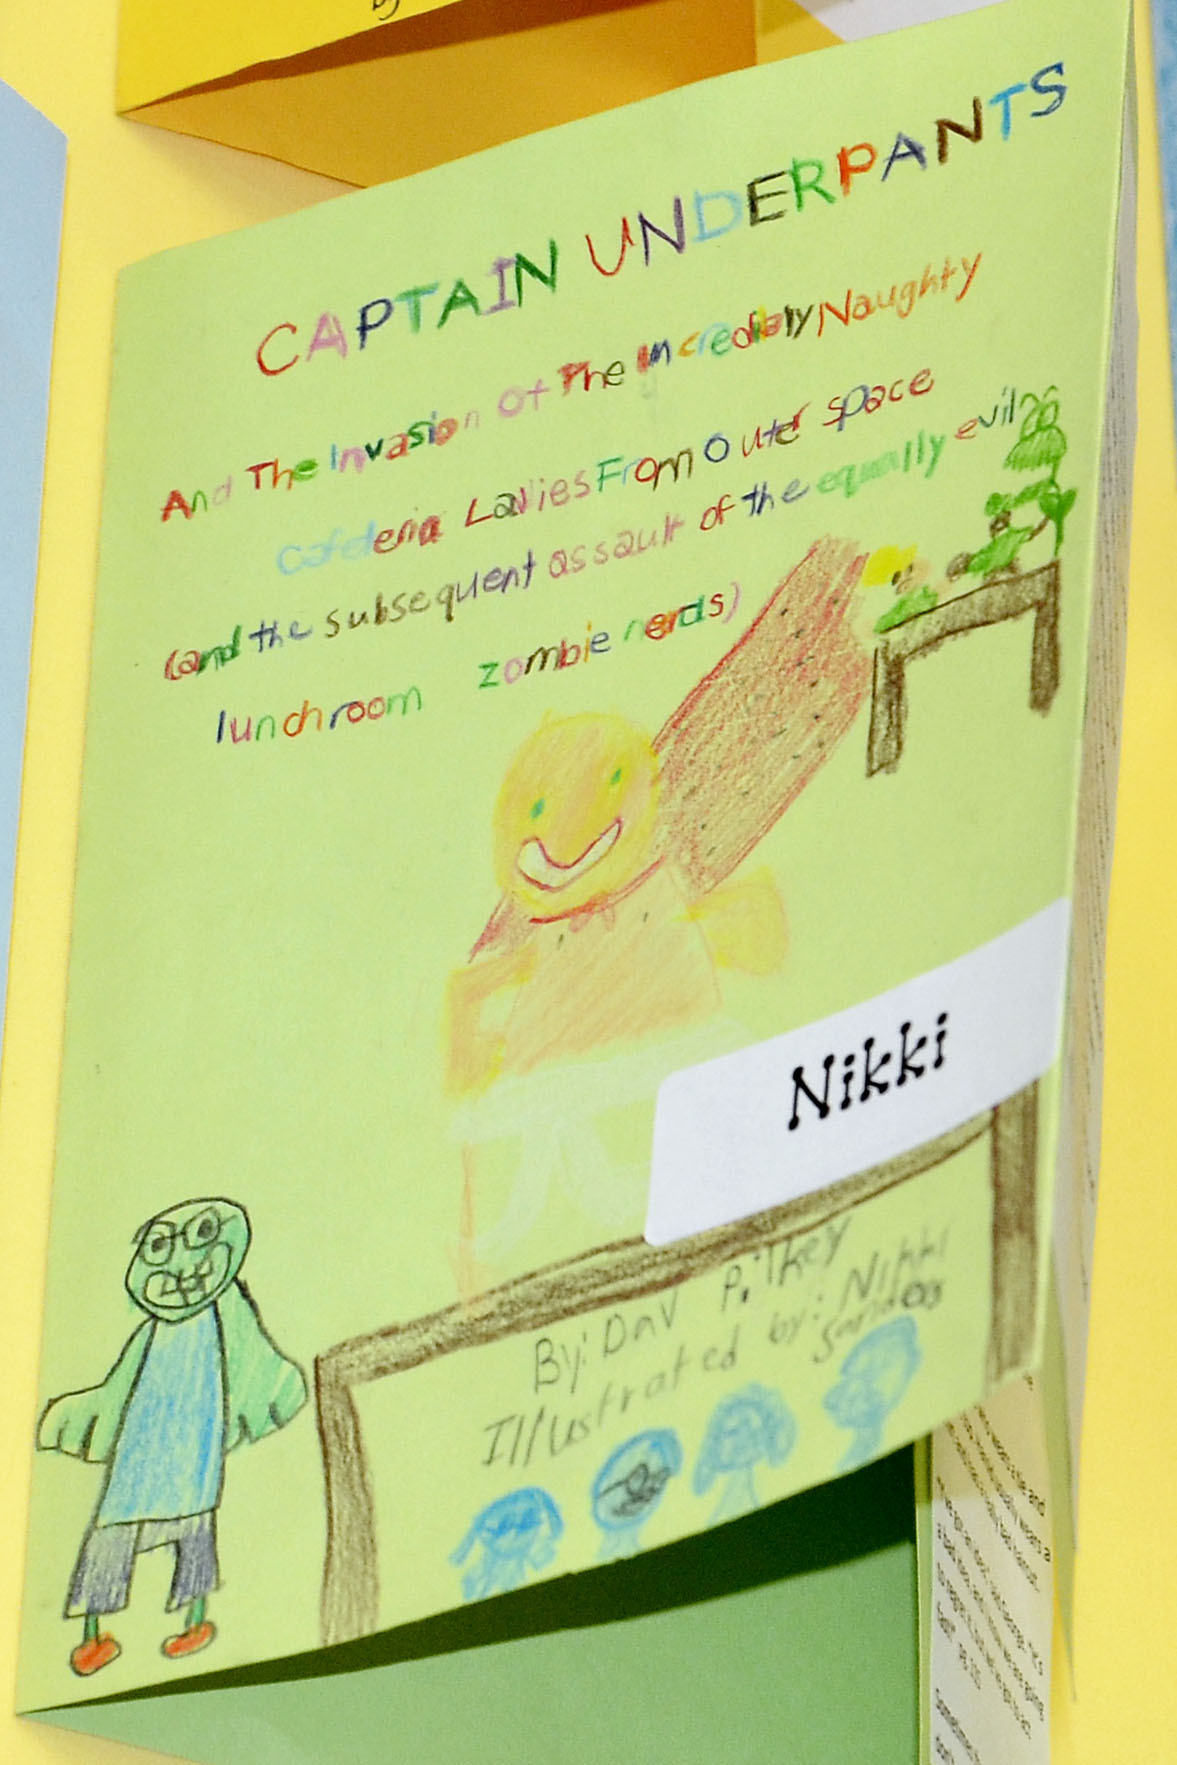 by
CAPTAIN UNDERPANTS
And The Invasion Of The incredibly Naughty
Cafeteria Ladies From Outer space
(and the subsequent assault of the equally evil
lunchroom zombie nerds)
Nikki
By: Dav Pilkey
Illustrated by: Nikki